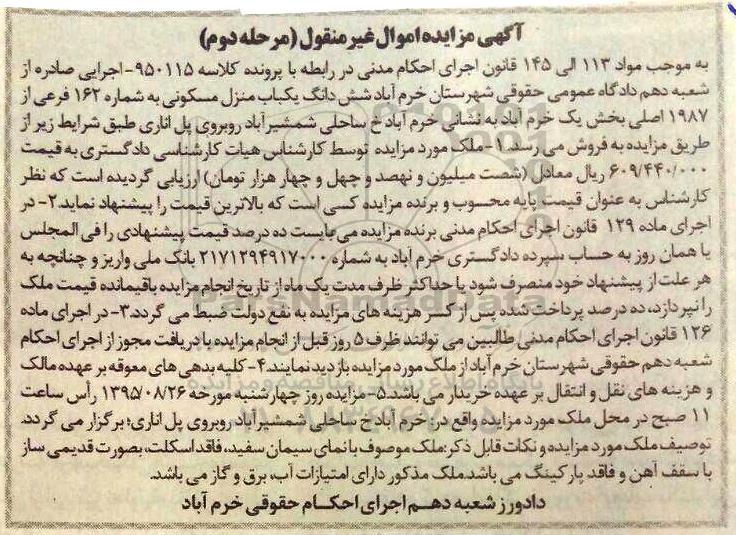 آگهی مزایده اموال غیر منقول (مرحله دوم)
به موجب مواد ۱۱۳ الی ۱۴۵ قانون اجرای احکام مدنی در رابطه با پرونده کلاسه ۹۵۰۱۱۵- اجرایی صادره از
شعبه دهم دادگاه عمومی حقوقی شهرستان خرم آباد شش دانگ یکباب منزل مسکونی به شماره ۱۶۲ فرعی از
۱۹۸۷ اصلی بخش یک خرم آباد به نشانی خرم آباد خ ساحلی شمشیرآباد روبروی پل اناری طبق شرایط زیر از
طریق مزایده به فروش می رسد. ۱- ملک مورد مزایده توسط کارشناس هیات کارشناسی دادگستری به قیمت
۶۰۹/۴۴۰/۰۰۰ ریال معادل (شصت میلیون و نهصد و چهل و چهار هزار تومان) ارزیابی گردیده است که نظر
کارشناس به عنوان قیمت پایه محسوب و برنده مزایده کسی است که بالاترین قیمت را پیشنهاد نماید ۲- در
اجرای ماده ۱۲۹ قانون اجرای احکام مدنی برنده مزایده می بایست ده درصد قیمت پیشنهادی را فی المجلس
یا همان روز به حساب سپرده دادگستری خرم آباد به شماره ۲۱۷۱۲۹۴۹۱۷۰۰۰ بانک ملی واریز و چنانچه به
هر علت از پیشنهاد خود منصرف شود یا حداکثر ظرف مدت یک ماه از تاریخ انجام مزایده باقیمانده قیمت ملک
را نپردازد، ده درصد پرداخت شده پس از کسر هزینه های مزایده به نفع دولت ضبط می گردد. ۳- در اجرای ماده
۱۲۶ قانون اجرای احکام مدنی طالبین می توانند ظرف ۵ روز قبل از انجام مزایده با دریافت مجوز از اجرای احکام
شعبه دهم حقوقی شهرستان خرم آباد از ملک مورد مزایده بازدید نمایند. ۴- کلیه بدهی های معوقه بر عهده مالک
و هزینه های نقل و انتقال بر عهده خریدار می باشد. ۵- مزایده روز چهارشنبه مورخه ۱۳۹۵/۰۸/۲۶ رأس ساعت
۱۱ صبح در محل ملک مورد مزایده واقع در: خرم آباد خ ساحلی شمشیرآباد روبروی پل اناری؛ برگزار می گردد.
توصیف ملک مورد مزایده و نکات قابل ذکر: ملک موصوف با نمای سیمان سفید، فاقد اسکلت، بصورت قدیمی ساز
با سقف آهن و فاقد پارکینگ می باشد. ملک مذکور دارای امتیازات آب، برق و گاز می باشد.
دادورز شعبه دهم اجرای احکام حقوقی خرم آباد
ParsNamadData